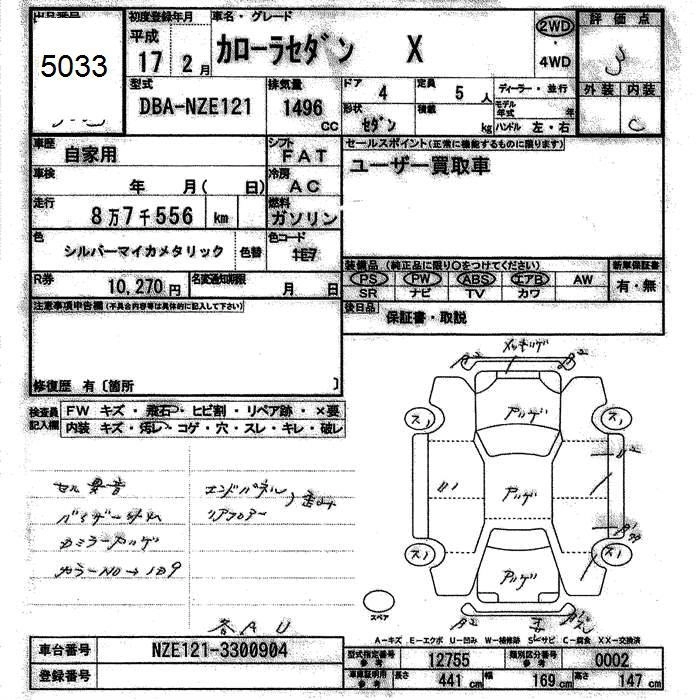 出品番号
5033
初度登録年月
平成
17 2月
車名・グレード
カローラセダン X
2WD
・
4WD
評価点
外装 内装
C
型式
DBA-NZE121
排気量
1496
cc
ドア 4
定員 5人
形状 セダン
積載 kg
ディーラー・並行
モデル年式 年
ハンドル 左・右
車歴 自家用
シフト FAT
車検 年 月( 日)
冷房 AC
走行 8万7千556 km
燃料 ガソリン
色 シルバーマイカメタリック 色替
色コード 1E7
R券 10,270円
名変通知期限 月 日
セールスポイント(正常に機能するものに限ります)
ユーザー買取車
装備品(純正品に限り○をつけてください)
PS PW ABS エアB AW
SR ナビ TV カワ
新車保証書
有・無
後日品 保証書・取説
注意事項申告欄(不具合内容等は具体的に記入して下さい)
修復歴 有〔箇所 〕
検査員記入欄
FW キズ・飛石・ヒビ割・リペア跡・×要
内装 キズ・汚レ・コゲ・穴・スレ・キレ・破レ
セル異音
バイザー
カラーNo→1D9
エンドパネル
リアフロアー
歪み
各AU
アゲ
アゲ
アゲ
スペア
A-キズ E-エクボ U-凹み W-補修跡 S-サビ C-腐食 XX-交換済
車台番号 NZE121-3300904
登録番号
型式指定番号参考 12755
類別区分番号参考 0002
車庫証明用参考 長さ 441cm 幅 169cm 高さ 147cm